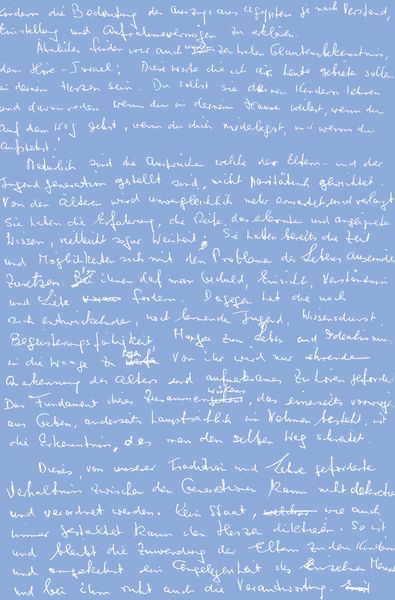 Kindern die Bedeutung des Auszugs aus Ägypten je nach Verstand,
Einstellung und Aufnahmevermögen zu erklären.
Ähnliches finden wir auch zentralen Glaubensbekenntnis,
dem Höre-Israel: Diese Worte die ich dir heute gebiete sollen
in deinem Herzen sein. Du sollst sie deinen Kindern lehren
und davon reden wenn du in deinem Hause weilest, wenn du
auf dem Weg gehst, wenn du dich niederlegst, und wenn du
aufstehst!
Natürlich sind die Ansprüche welche der Eltern- und der
Jugendgeneration gestellt sind, nicht paritätisch gewichtet.
Von den Älteren wird unvergleichlich mehr erwartet und verlangt
Sie haben die Erfahrung, die Reife, das erlernte und angeeignete
Wissen, vielleicht sogar Weisheit. Sie hatten bereits die Zeit
und Möglichkeiten sich mit den Problemen des Lebens auseinander
zusetzen. Bei ihnen darf man Geduld, Einsicht, Verständnis
und Liebe fordern. Dagegen hat die noch
sich entwickelnde, noch lernende Jugend, Wissensdurst,
Begeisterungsfähigkeit, Hunger zum Leben und Idealismus
in die Waage zu legen. Von ihr wird nur
Anerkennung des Alters und aufmerksames Zuhören gefordert
Das Fundament dieses Zusammenwirkens, das einerseits vorwiegend
aus Geben, anderseits hauptsächlich in Nehmen besteht, ist
die Erkenntnis, das man den selben Weg schreitet.
Dieses, von unserer Tradition und Lehre geforderte
Verhältnis zwischen den Generationen kann nicht dekretiert
und verordnet werden. Kein Staat, wie auch
immer gestaltet kann den Herzen diktieren. So ist
und bleibt die Zuwendung der Eltern zu den Kindern
und umgekehrt ein Angelegenheit des Einzelnen Menschen
und bei ihm ruht auch die Verantwortung.